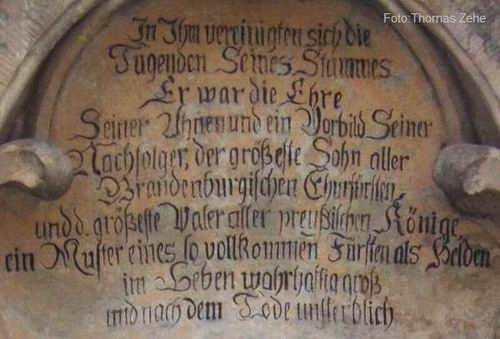 Foto:Thomas Zehe
In Ihm vereinigten sich die
Tugenden Seines Stammes
Er war die Ehre
Seiner Ahnen und ein Vorbild Seiner
Nachfolger, der größeste Sohn aller
Brandenburgischen Churfürsten,
und d. größeste Vater aller preußischen Könige,
ein Muster eines so vollkommen Fürsten als Helden
im Leben wahrhaftig groß
und nach dem Tode unsterblich